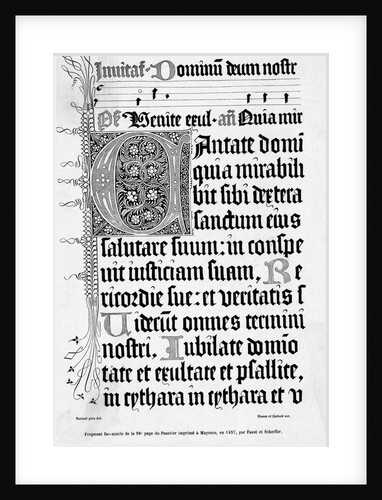 Inuitať Dominū deum nostr
Pš Venite exul. añ Quia mir
CAntate domī
quia mirabili
bit sibi dextera
sanctum eius
salutare suum: in conspe
uit iusticiam suam, Re
ricordie sue: et veritatis s
Uiderūt omnes termini
nostri, Iubilate domīo
tate et exultate et psallite,
in cythara in cythara et v
Fragment fac-simile de la 86e page du Psautier imprimé à Mayence, en 1457, par Faust et Schœffer.